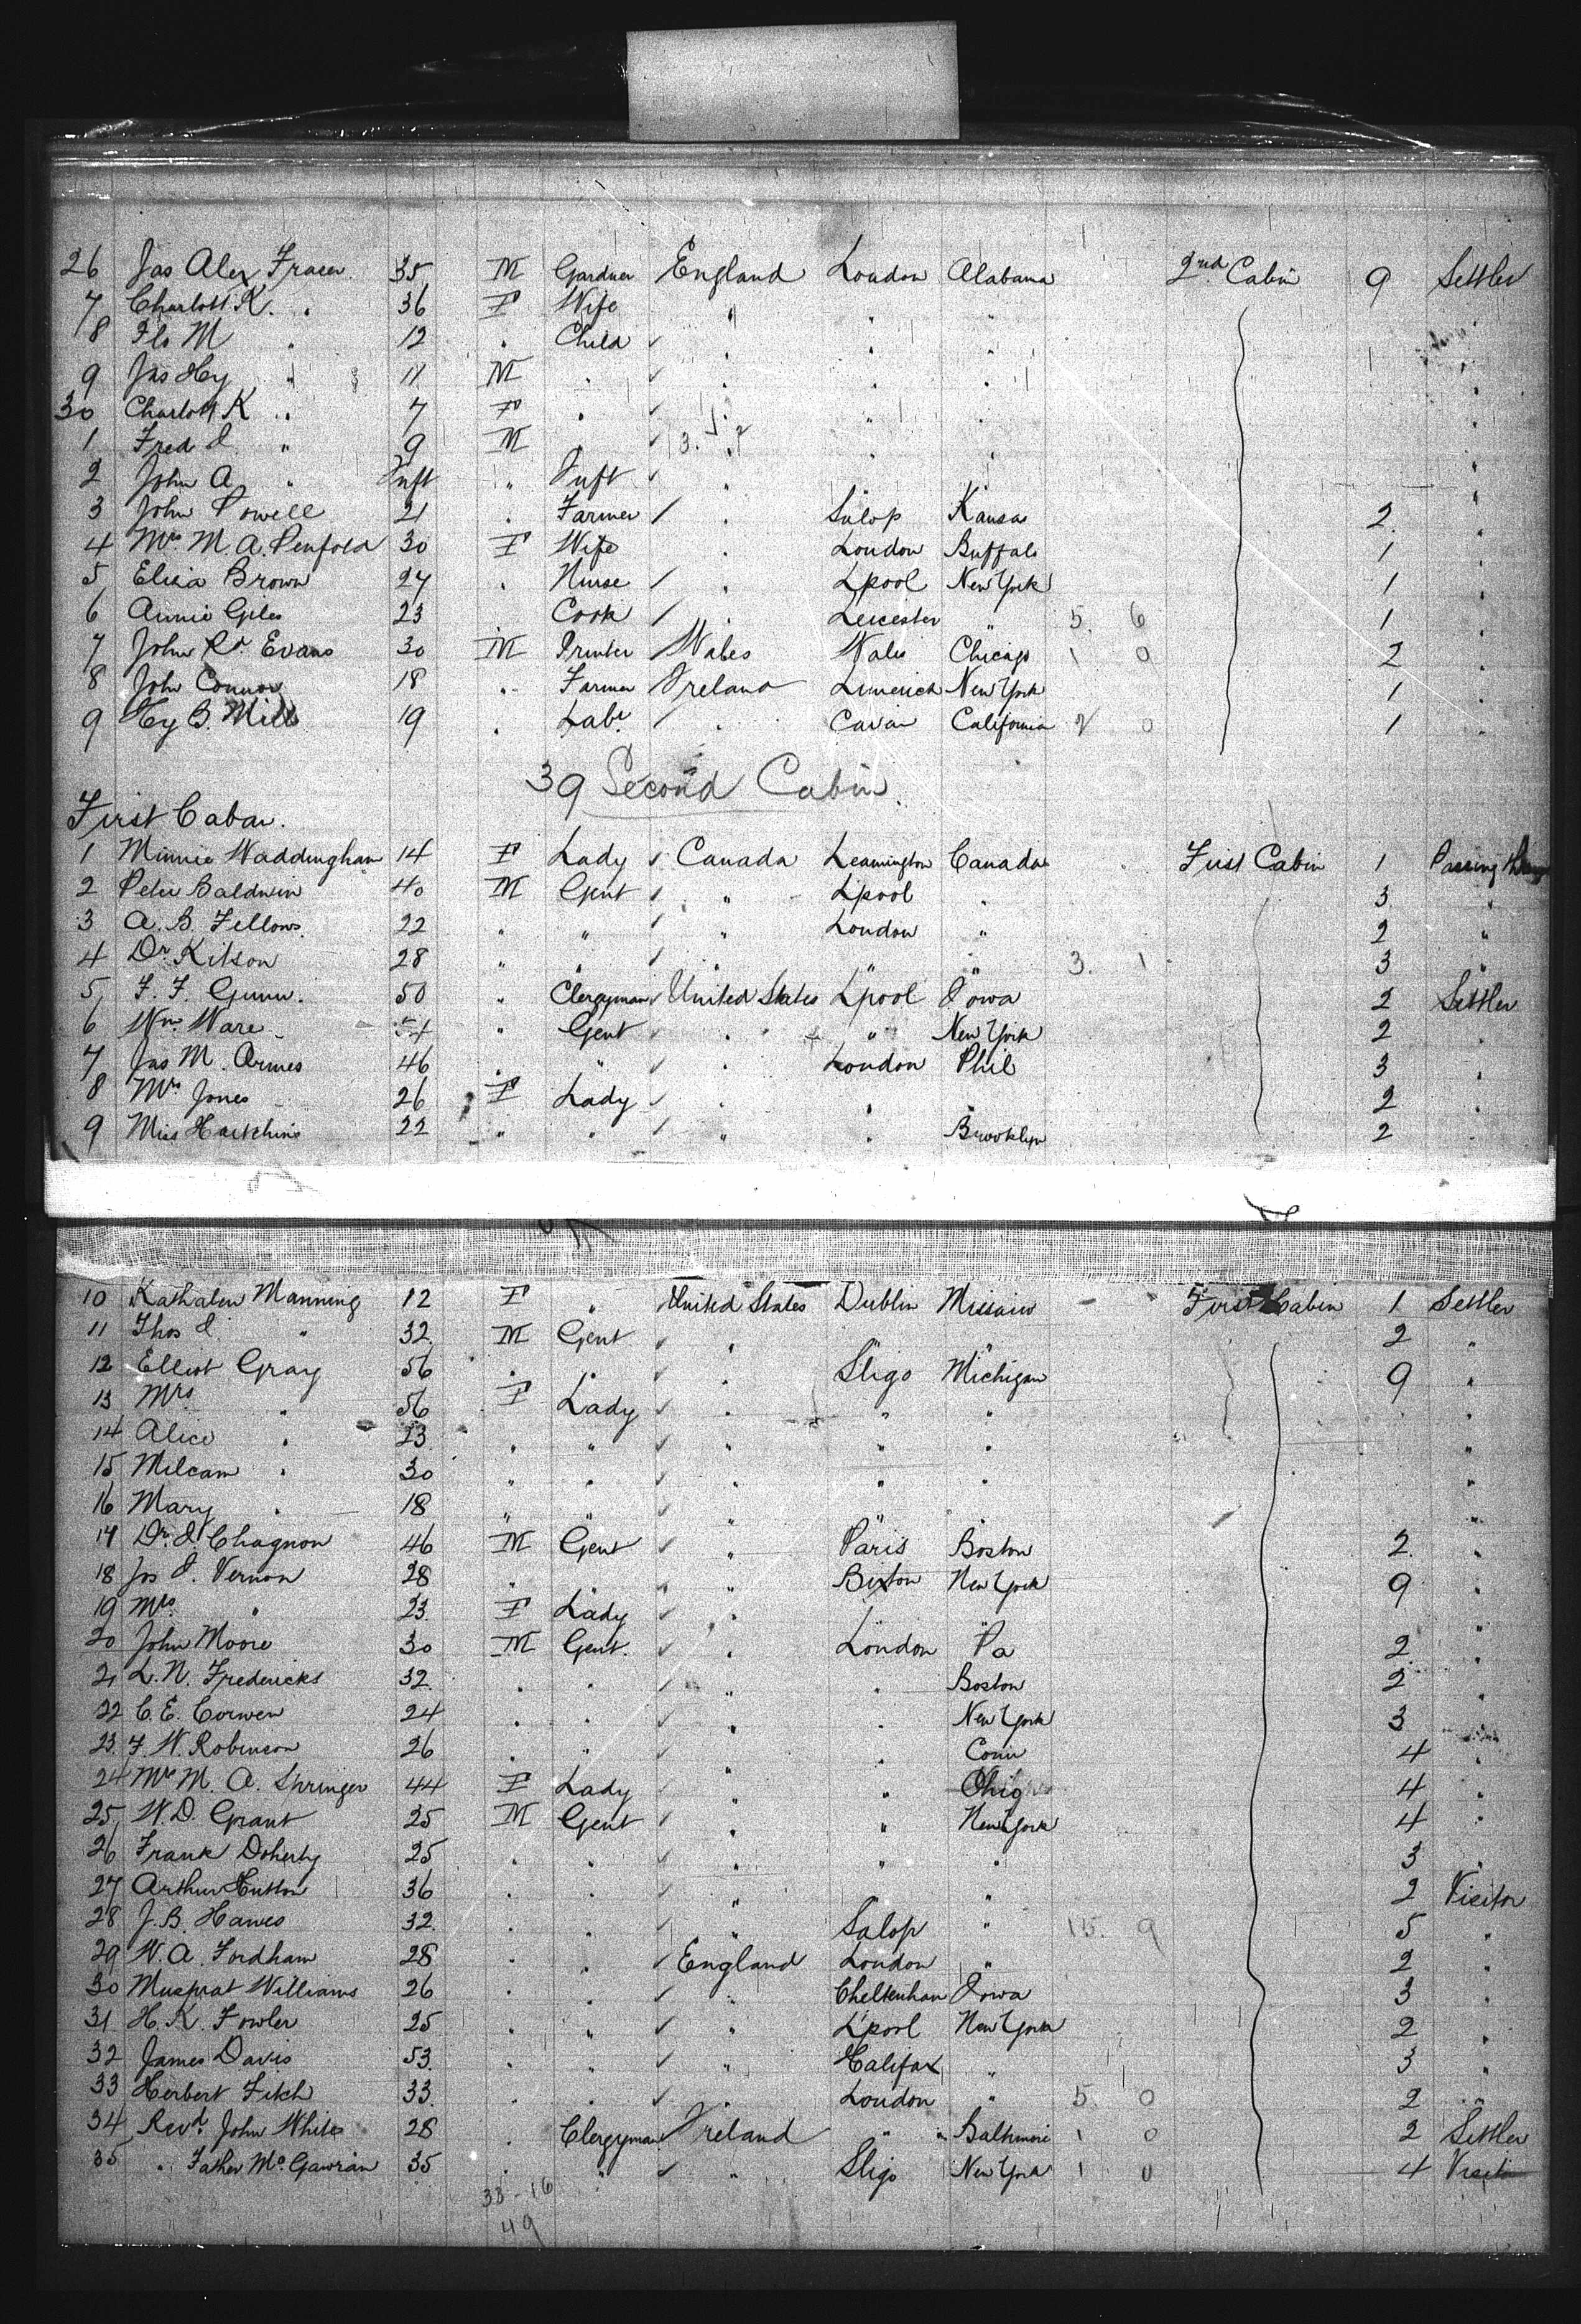 26 Jas Alex Fraser 35 M Gardner England London Alabama 2nd Cabin 9 Settler
7 Charlott K. " 36 F Wife " " "
8 Flo M " 12 " Child " " "
9 Jas Hy " 11 M " " " "
30 Charlott K " 7 F " " " "
1 Fred J " 9 M " " " "
2 John A " Inft " Inft " " " "
3 John Powell 21 " Farmer " Salop Kansas 2 "
4 Mrs M. A. Penfold 30 F Wife " London Buffalo 1 "
5 Eliza Brown 27 " Nurse " Lpool New York 1 "
6 Annie Giles 23 Cook " Leicester " 5. 6 1 "
7 John Rd Evans 30 M Printer Wales Wales Chicago 1 0 2 "
8 John Connor 18 " Farmer Ireland Limerick New York 1 "
9 Hy B. Mills 19 " Labr " Cavan California 2 0 1 "
39 Second Cabin.
First Cabin.
1 Minnie Waddingham 14 F Lady Canada Leamington Canada First Cabin 1 Passing through
2 Peter Baldwin 40 M Gent " Lpool " 3 "
3 A. B. Fellows 22 " " " London " 2 "
4 Dr Kitson 28 " " " " " 3. 1 3 "
5 F. F. Gunn. 50 " Clergyman United States Lpool Iowa 2 Settler
6 Wm Ware 54 " Gent " " New York 2 "
7 Jas M. Armes 46 " " " London Phil 3 "
8 Mrs Jones 26 F Lady " " " 2 "
9 Miss Hutchins 22 " " " " Brooklyn 2 "
10 Kathalen Manning 12 F " United States Dublin Missouri First Cabin 1 Settler
11 Thos J. " 32 M Gent " " " 2 "
12 Elliot Gray 56 " " " Sligo Michigan 9 "
13 Mrs " 56 F Lady " " " "
14 Alice " 23 " " " " " "
15 Milcam " 30 " " " " " "
16 Mary " 18 " " " " " "
17 Dr. J. Chagnon 46 M Gent " Paris Boston 2 "
18 Jos J. Vernon 28 " " " Buxton New York 9 "
19 Mrs " 23 F Lady " " " "
20 John Moore 30 M Gent. " London Pa 2 "
21 L. N. Fredericks 32 " " " " Boston 2 "
22 C. E. Corwen 24 " " " " New York 3 "
23 F. W. Robinson 26 " " " " Conn 4 "
24 Mrs M. A. Shringer 44 F Lady " " Ohio 4 "
25 W. D. Grant 25 M Gent " " New York 4 "
26 Frank Doherty 25 " " " " " 3 "
27 Arthur Hutton 36 " " " " " 2 Visitor
28 J. B. Hawes 32 " " " Salop " 15. 9 5 "
29 W. A. Fordham 28 " " England London " 2 "
30 Musprat Williams 26 " " " Cheltenham Iowa 3 "
31 H. K. Fowler 25 " " " Lpool New York 2 "
32 James Davis 53 " " " Halifax " 3 "
33 Herbert Fitch 33 " " " London " 5 0 2 "
34 Revd. John White 28 " Clergyman Ireland " Baltimore 1 0 2 Settler
35 " Father McGawran 35 " " " Sligo New York 1 0 4 Visitor
33-16
49